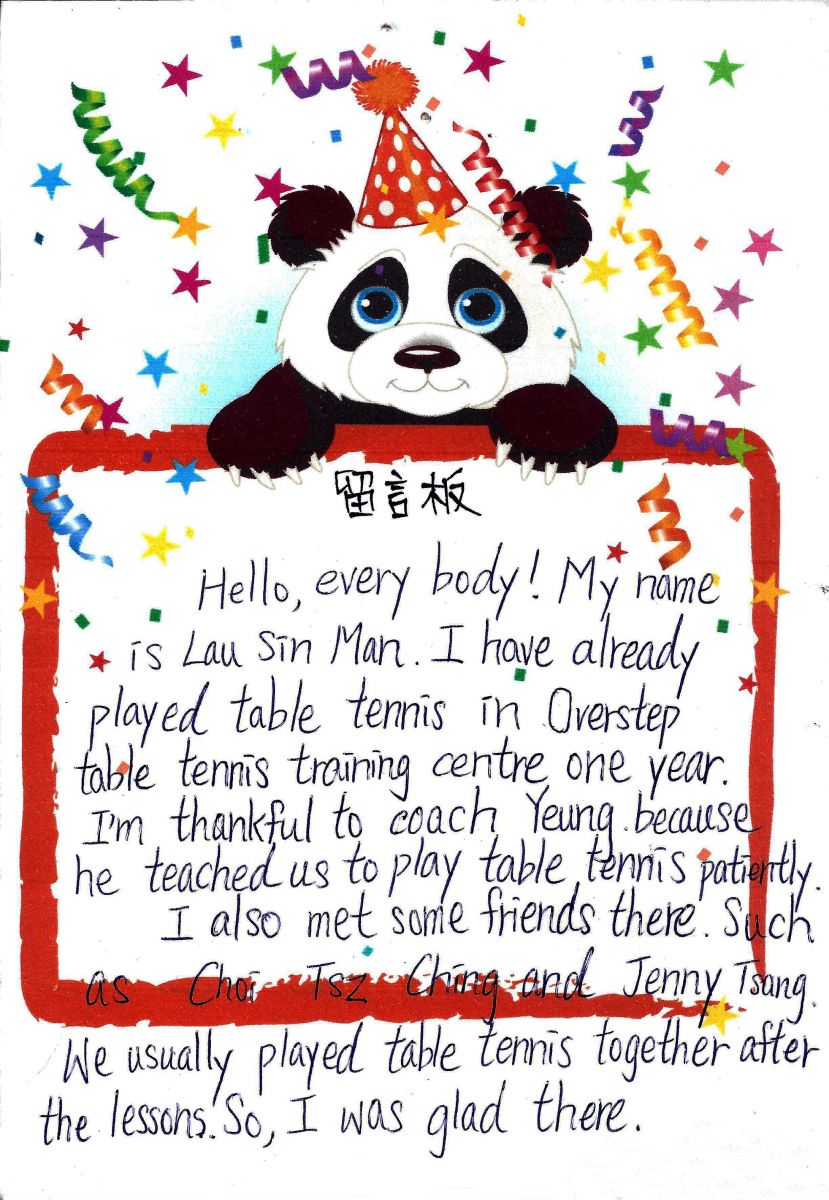 留言板
Hello, every body! My name
is Lau Sin Man. I have already
played table tennis in Overstep
table tennis training centre one year.
I'm thankful to coach Yeung because
he teached us to play table tennis patiently.
I also met some friends there. Such
as Choi Tsz Ching and Jenny Tsang.
We usually played table tennis together after
the lessons. So, I was glad there.